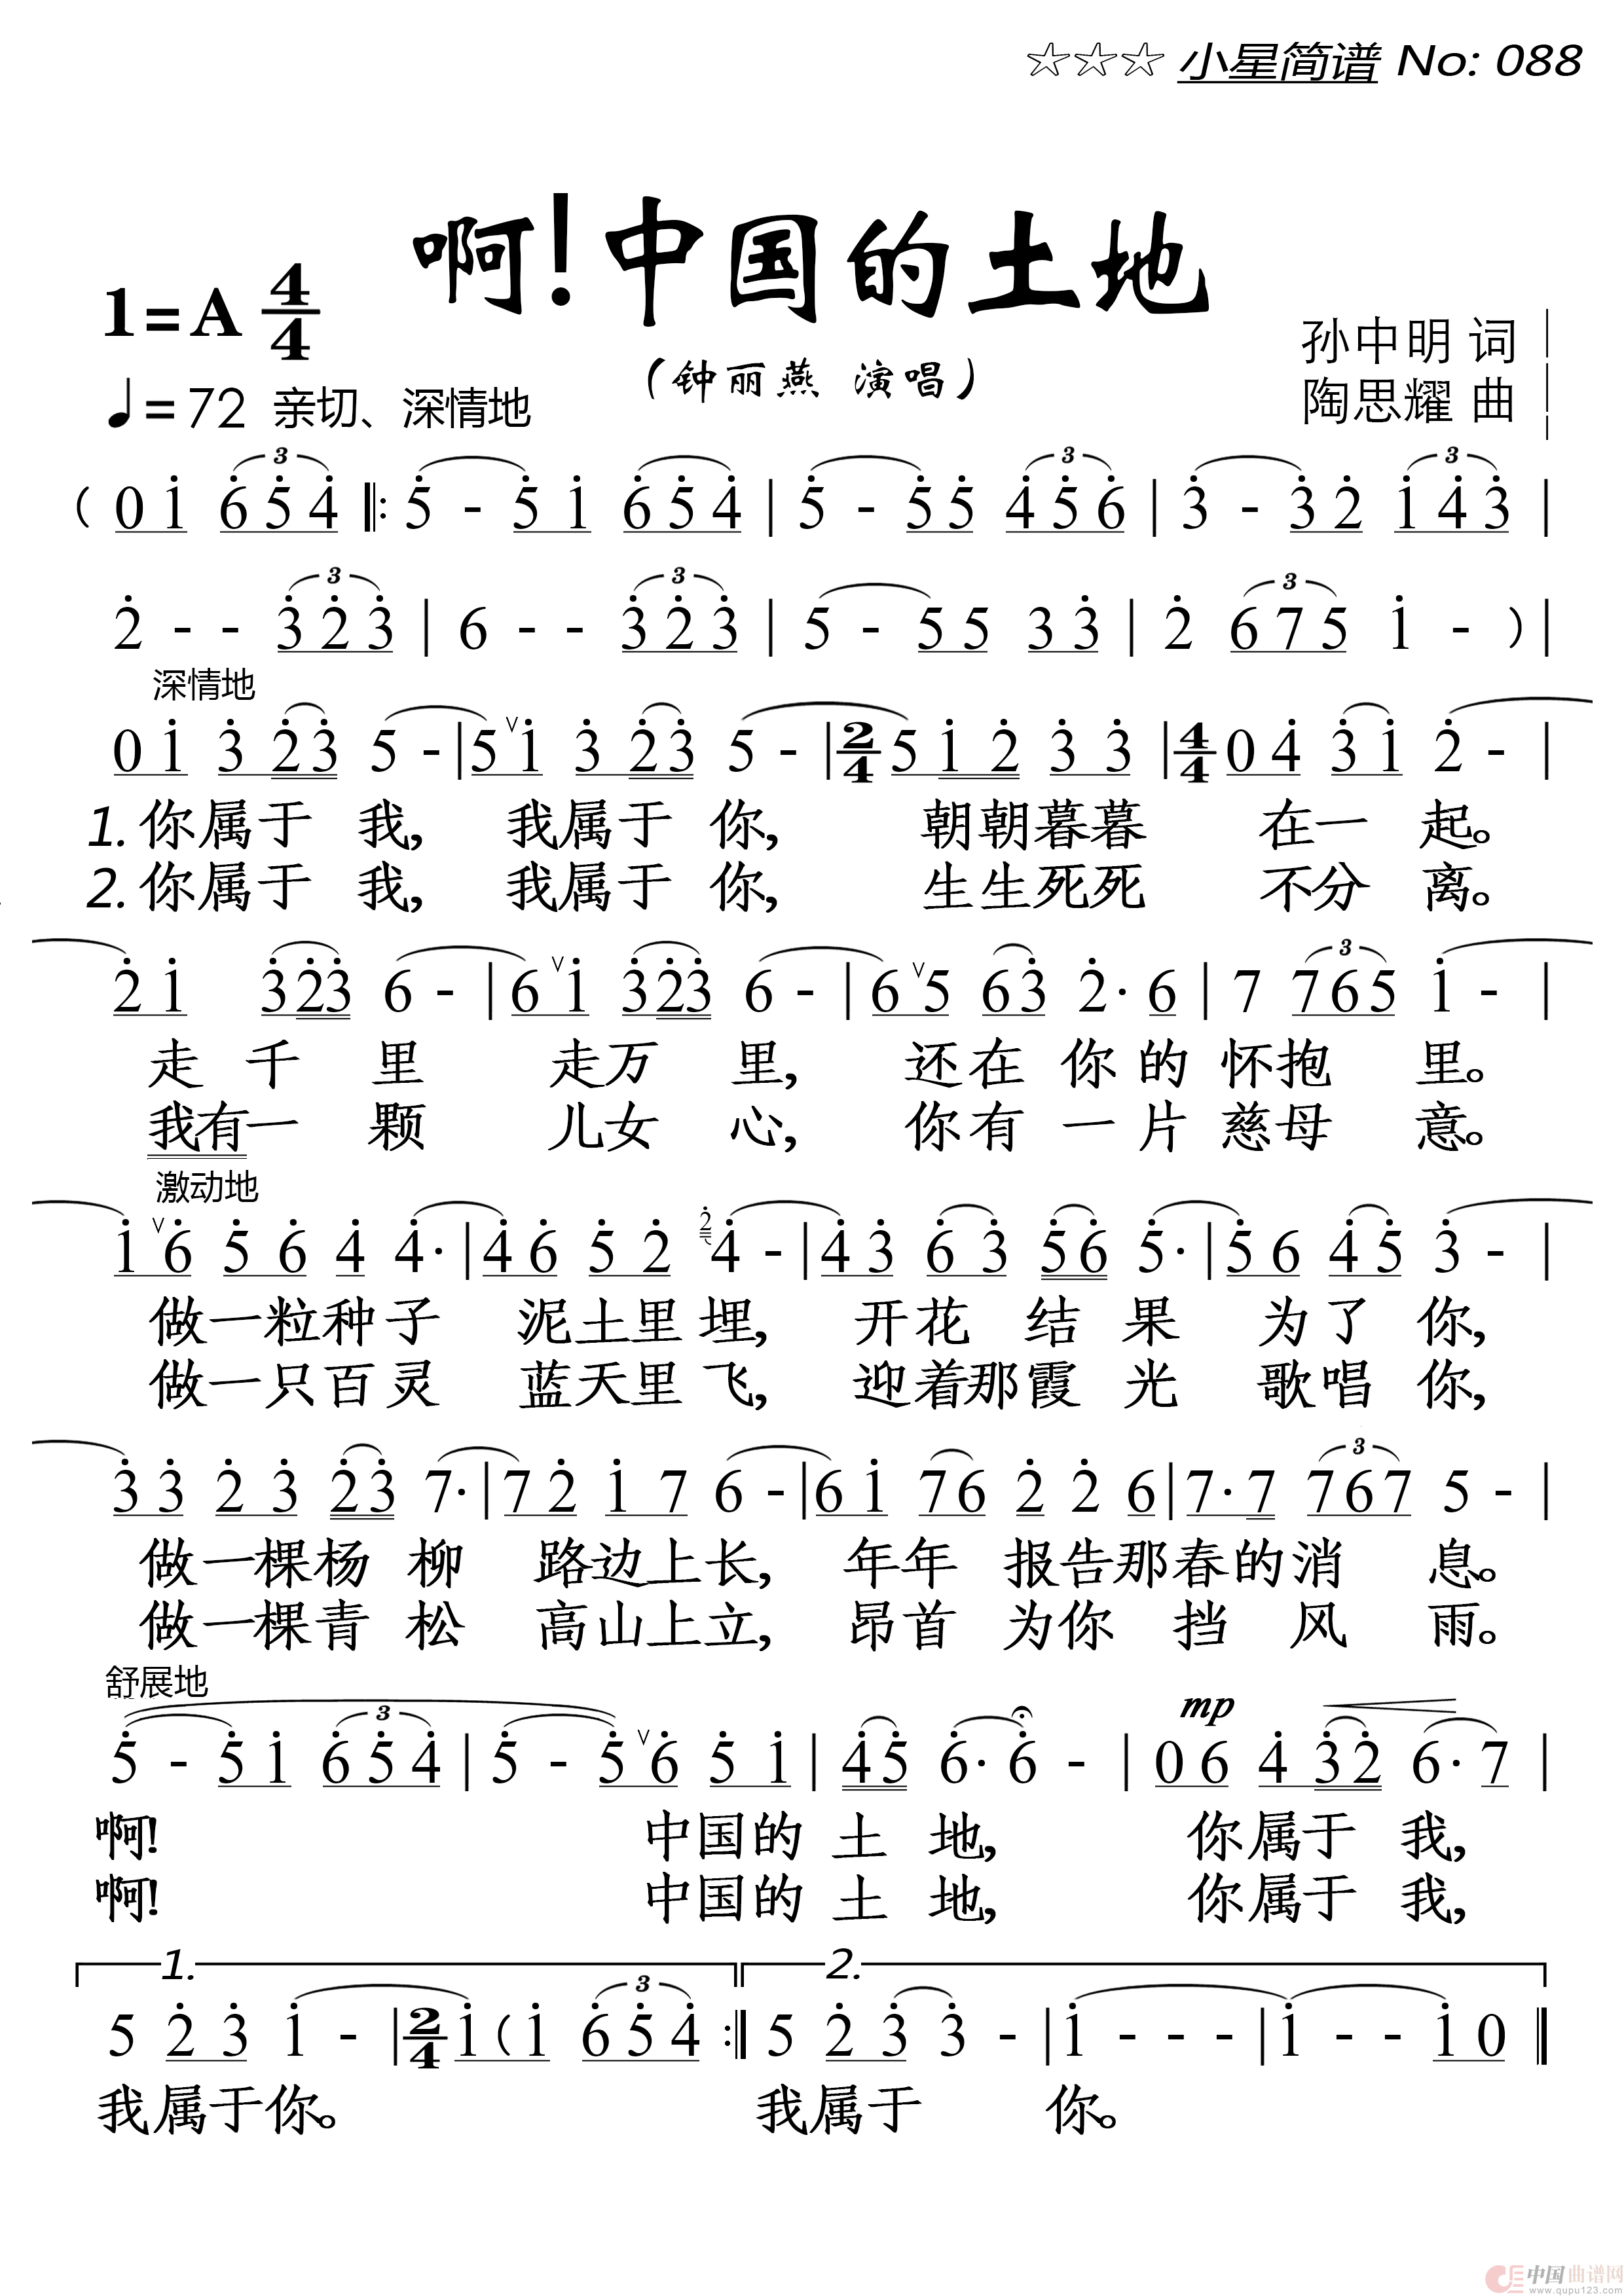 ☆☆☆ 小星简谱 No: 088
啊!中国的土地
1=A 4/4
孙中明 词
(钟丽燕 演唱)
♩=72 亲切、深情地
陶思耀 曲
( 0 1̇ 6̇ 5̇ 4̇ ‖: 5̇ - 5̇ 1̇ 6̇ 5̇ 4̇ | 5̇ - 5̇ 5̇ 4̇ 5̇ 6̇ | 3̇ - 3̇ 2̇ 1̇ 4̇ 3̇ |
2̇ - - 3̇ 2̇ 3̇ | 6 - - 3̇ 2̇ 3̇ | 5 - 5 5 3 3̇ | 2̇ 6 7 5 1̇ - ) |
深情地
0 1̇ 3̇ 2̇ 3̇ 5 - | 5 ∨ 1̇ 3̇ 2̇ 3̇ 5 - | 2/4 5 1̇ 2̇ 3̇ 3̇ | 4/4 0 4̇ 3̇ 1̇ 2̇ - |
1. 你属于 我, 我属于 你, 朝朝暮暮 在一 起。
2. 你属于 我, 我属于 你, 生生死死 不分 离。
2̇ 1̇ 3̇ 2̇ 3̇ 6 - | 6 ∨ 1̇ 3̇ 2̇ 3̇ 6 - | 6 ∨ 5 6 3̇ 2̇· 6 | 7 7 6 5 1̇ - |
走 千 里 走万 里, 还在 你 的 怀抱 里。
我有一 颗 儿女 心, 你有 一 片 慈母 意。
激动地
1̇ ∨ 6̇ 5̇ 6̇ 4̇ 4̇· | 4̇ 6̇ 5̇ 2̇ 2̇ 4̇ - | 4̇ 3̇ 6̇ 3̇ 5̇ 6̇ 5̇· | 5̇ 6 4̇ 5̇ 3̇ - |
做一粒种子 泥土里埋, 开花 结 果 为了 你,
做一只百灵 蓝天里飞, 迎着那霞 光 歌唱 你,
3̇ 3̇ 2̇ 3̇ 2̇ 3̇ 7· | 7 2̇ 1̇ 7 6 - | 6 1̇ 7 6 2̇ 2̇ 6 | 7· 7 7 6 7 5 - |
做一棵杨 柳 路边上长, 年年 报告那春的消 息。
做一棵青 松 高山上立, 昂首 为你 挡 风 雨。
舒展地
mp
5̇ - 5̇ 1̇ 6̇ 5̇ 4̇ | 5̇ - 5̇ ∨ 6̇ 5̇ 1̇ | 4̇ 5̇ 6̇· 6̇ - | 0 6 4̇ 3̇ 2̇ 6· 7 |
啊! 中国的 土 地, 你属于 我,
啊! 中国的 土 地, 你属于 我,
1. 2.
5 2̇ 3̇ 1̇ - | 2/4 1̇ ( 1̇ 6̇ 5̇ 4̇ :‖ 5 2̇ 3̇ 3̇ - | 1̇ - - - | 1̇ - - 1̇ 0 ‖
我属于你。 我属于 你。
中国曲谱网
www.qupu123.com